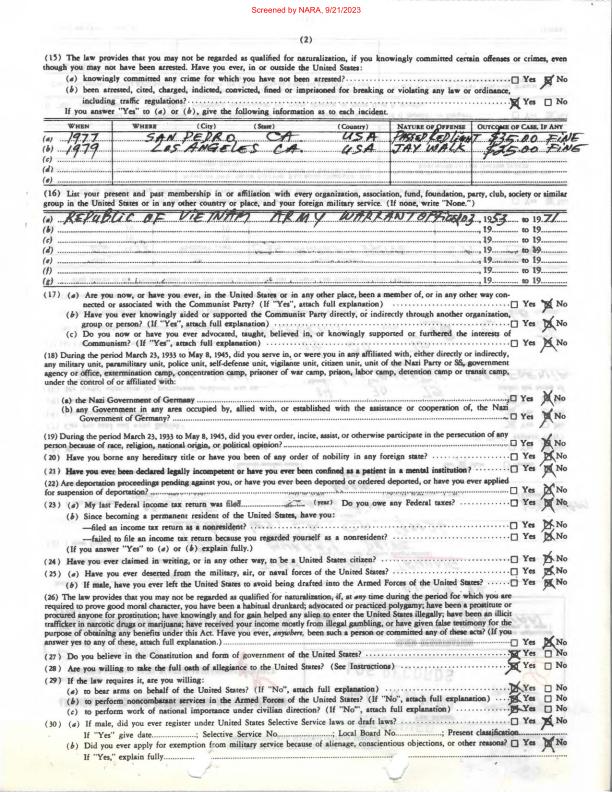 Screened by NARA, 9/21/2023
(2)
(15) The law provides that you may not be regarded as qualified for naturalization, if you knowingly committed certain offenses or crimes, even
though you may not have been arrested. Have you ever, in or outside the United States:
(a) knowingly committed any crime for which you have not been arrested? ☐ Yes ☒ No
(b) been arrested, cited, charged, indicted, convicted, fined or imprisoned for breaking or violating any law or ordinance,
including traffic regulations? ☒ Yes ☐ No
If you answer "Yes" to (a) or (b), give the following information as to each incident.
WHEN WHERE (City) (State) (Country) NATURE OF OFFENSE OUTCOME OF CASE, IF ANY
(a) 1977 SAN PEDRO CA USA PASSED RED LIGHT $35.00 FINE
(b) 1979 LOS ANGELES CA. USA JAY WALK $25.00 FINE
(c)
(d)
(e)
(16) List your present and past membership in or affiliation with every organization, association, fund, foundation, party, club, society or similar
group in the United States or in any other country or place, and your foreign military service. (If none, write "None.")
(a) REPUBLIC OF VIETNAM ARMY WARRANT OFFICER , 1953 to 1971
(b) , 19 to 19
(c) , 19 to 19
(d) , 19 to 19
(e) , 19 to 19
(f) , 19 to 19
(g) , 19 to 19
(17) (a) Are you now, or have you ever, in the United States or in any other place, been a member of, or in any other way con-
nected or associated with the Communist Party? (If "Yes", attach full explanation) ☐ Yes ☒ No
(b) Have you ever knowingly aided or supported the Communist Party directly, or indirectly through another organization,
group or person? (If "Yes", attach full explanation) ☐ Yes ☒ No
(c) Do you now or have you ever advocated, taught, believed in, or knowingly supported or furthered the interests of
Communism? (If "Yes", attach full explanation) ☐ Yes ☒ No
(18) During the period March 23, 1933 to May 8, 1945, did you serve in, or were you in any affiliated with, either directly or indirectly,
any military unit, paramilitary unit, police unit, self-defense unit, vigilante unit, citizen unit, unit of the Nazi Party or SS, government
agency or office, extermination camp, concentration camp, prisoner of war camp, prison, labor camp, detention camp or transit camp,
under the control of or affiliated with:
(a) the Nazi Government of Germany ☐ Yes ☒ No
(b) any Government in any area occupied by, allied with, or established with the assistance or cooperation of, the Nazi
Government of Germany? ☐ Yes ☒ No
(19) During the period March 23, 1933 to May 8, 1945, did you ever order, incite, assist, or otherwise participate in the persecution of any
person because of race, religion, national origin, or political opinion? ☐ Yes ☒ No
(20) Have you borne any hereditary title or have you been of any order of nobility in any foreign state? ☐ Yes ☒ No
(21) Have you ever been declared legally incompetent or have you ever been confined as a patient in a mental institution? ☐ Yes ☒ No
(22) Are deportation proceedings pending against you, or have you ever been deported or ordered deported, or have you ever applied
for suspension of deportation? ☐ Yes ☒ No
(23) (a) My last Federal income tax return was filed (year) Do you owe any Federal taxes? ☐ Yes ☒ No
(b) Since becoming a permanent resident of the United States, have you:
—filed an income tax return as a nonresident? ☐ Yes ☒ No
—failed to file an income tax return because you regarded yourself as a nonresident? ☐ Yes ☒ No
(If you answer "Yes" to (a) or (b) explain fully.)
(24) Have you ever claimed in writing, or in any other way, to be a United States citizen? ☐ Yes ☒ No
(25) (a) Have you ever deserted from the military, air, or naval forces of the United States? ☐ Yes ☒ No
(b) If male, have you ever left the United States to avoid being drafted into the Armed Forces of the United States? ☐ Yes ☒ No
(26) The law provides that you may not be regarded as qualified for naturalization, if, at any time during the period for which you are
required to prove good moral character, you have been a habitual drunkard; advocated or practiced polygamy; have been a prostitute or
procured anyone for prostitution; have knowingly and for gain helped any alien to enter the United States illegally; have been an illicit
trafficker in narcotic drugs or marijuana; have received your income mostly from illegal gambling, or have given false testimony for the
purpose of obtaining any benefits under this Act. Have you ever, anywhere, been such a person or committed any of these acts? (If you
answer yes to any of these, attach full explanation.) ☐ Yes ☒ No
(27) Do you believe in the Constitution and form of government of the United States? ☒ Yes ☐ No
(28) Are you willing to take the full oath of allegiance to the United States? (See Instructions) ☒ Yes ☐ No
(29) If the law requires it, are you willing:
(a) to bear arms on behalf of the United States? (If "No", attach full explanation) ☒ Yes ☐ No
(b) to perform noncombatant services in the Armed Forces of the United States? (If "No", attach full explanation) ☒ Yes ☐ No
(c) to perform work of national importance under civilian direction? (If "No", attach full explanation) ☒ Yes ☐ No
(30) (a) If male, did you ever register under United States Selective Service laws or draft laws? ☐ Yes ☒ No
If "Yes" give date ; Selective Service No. ; Local Board No. ; Present classification
(b) Did you ever apply for exemption from military service because of alienage, conscientious objections, or other reasons? ☐ Yes ☒ No
If "Yes," explain fully